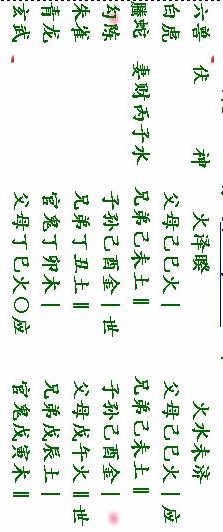 六兽 伏 神 火泽睽 火水未济
白虎 父母己巳火| 父母己巳火|应
螣蛇 妻财丙子水 兄弟己未土‖ 兄弟己未土‖
勾陈 子孙己酉金|世 子孙己酉金|
朱雀 兄弟丁丑土‖ 父母戊午火‖世
青龙 官鬼丁卯木| 兄弟戊辰土|
玄武 父母丁巳火○应 官鬼戊寅木‖